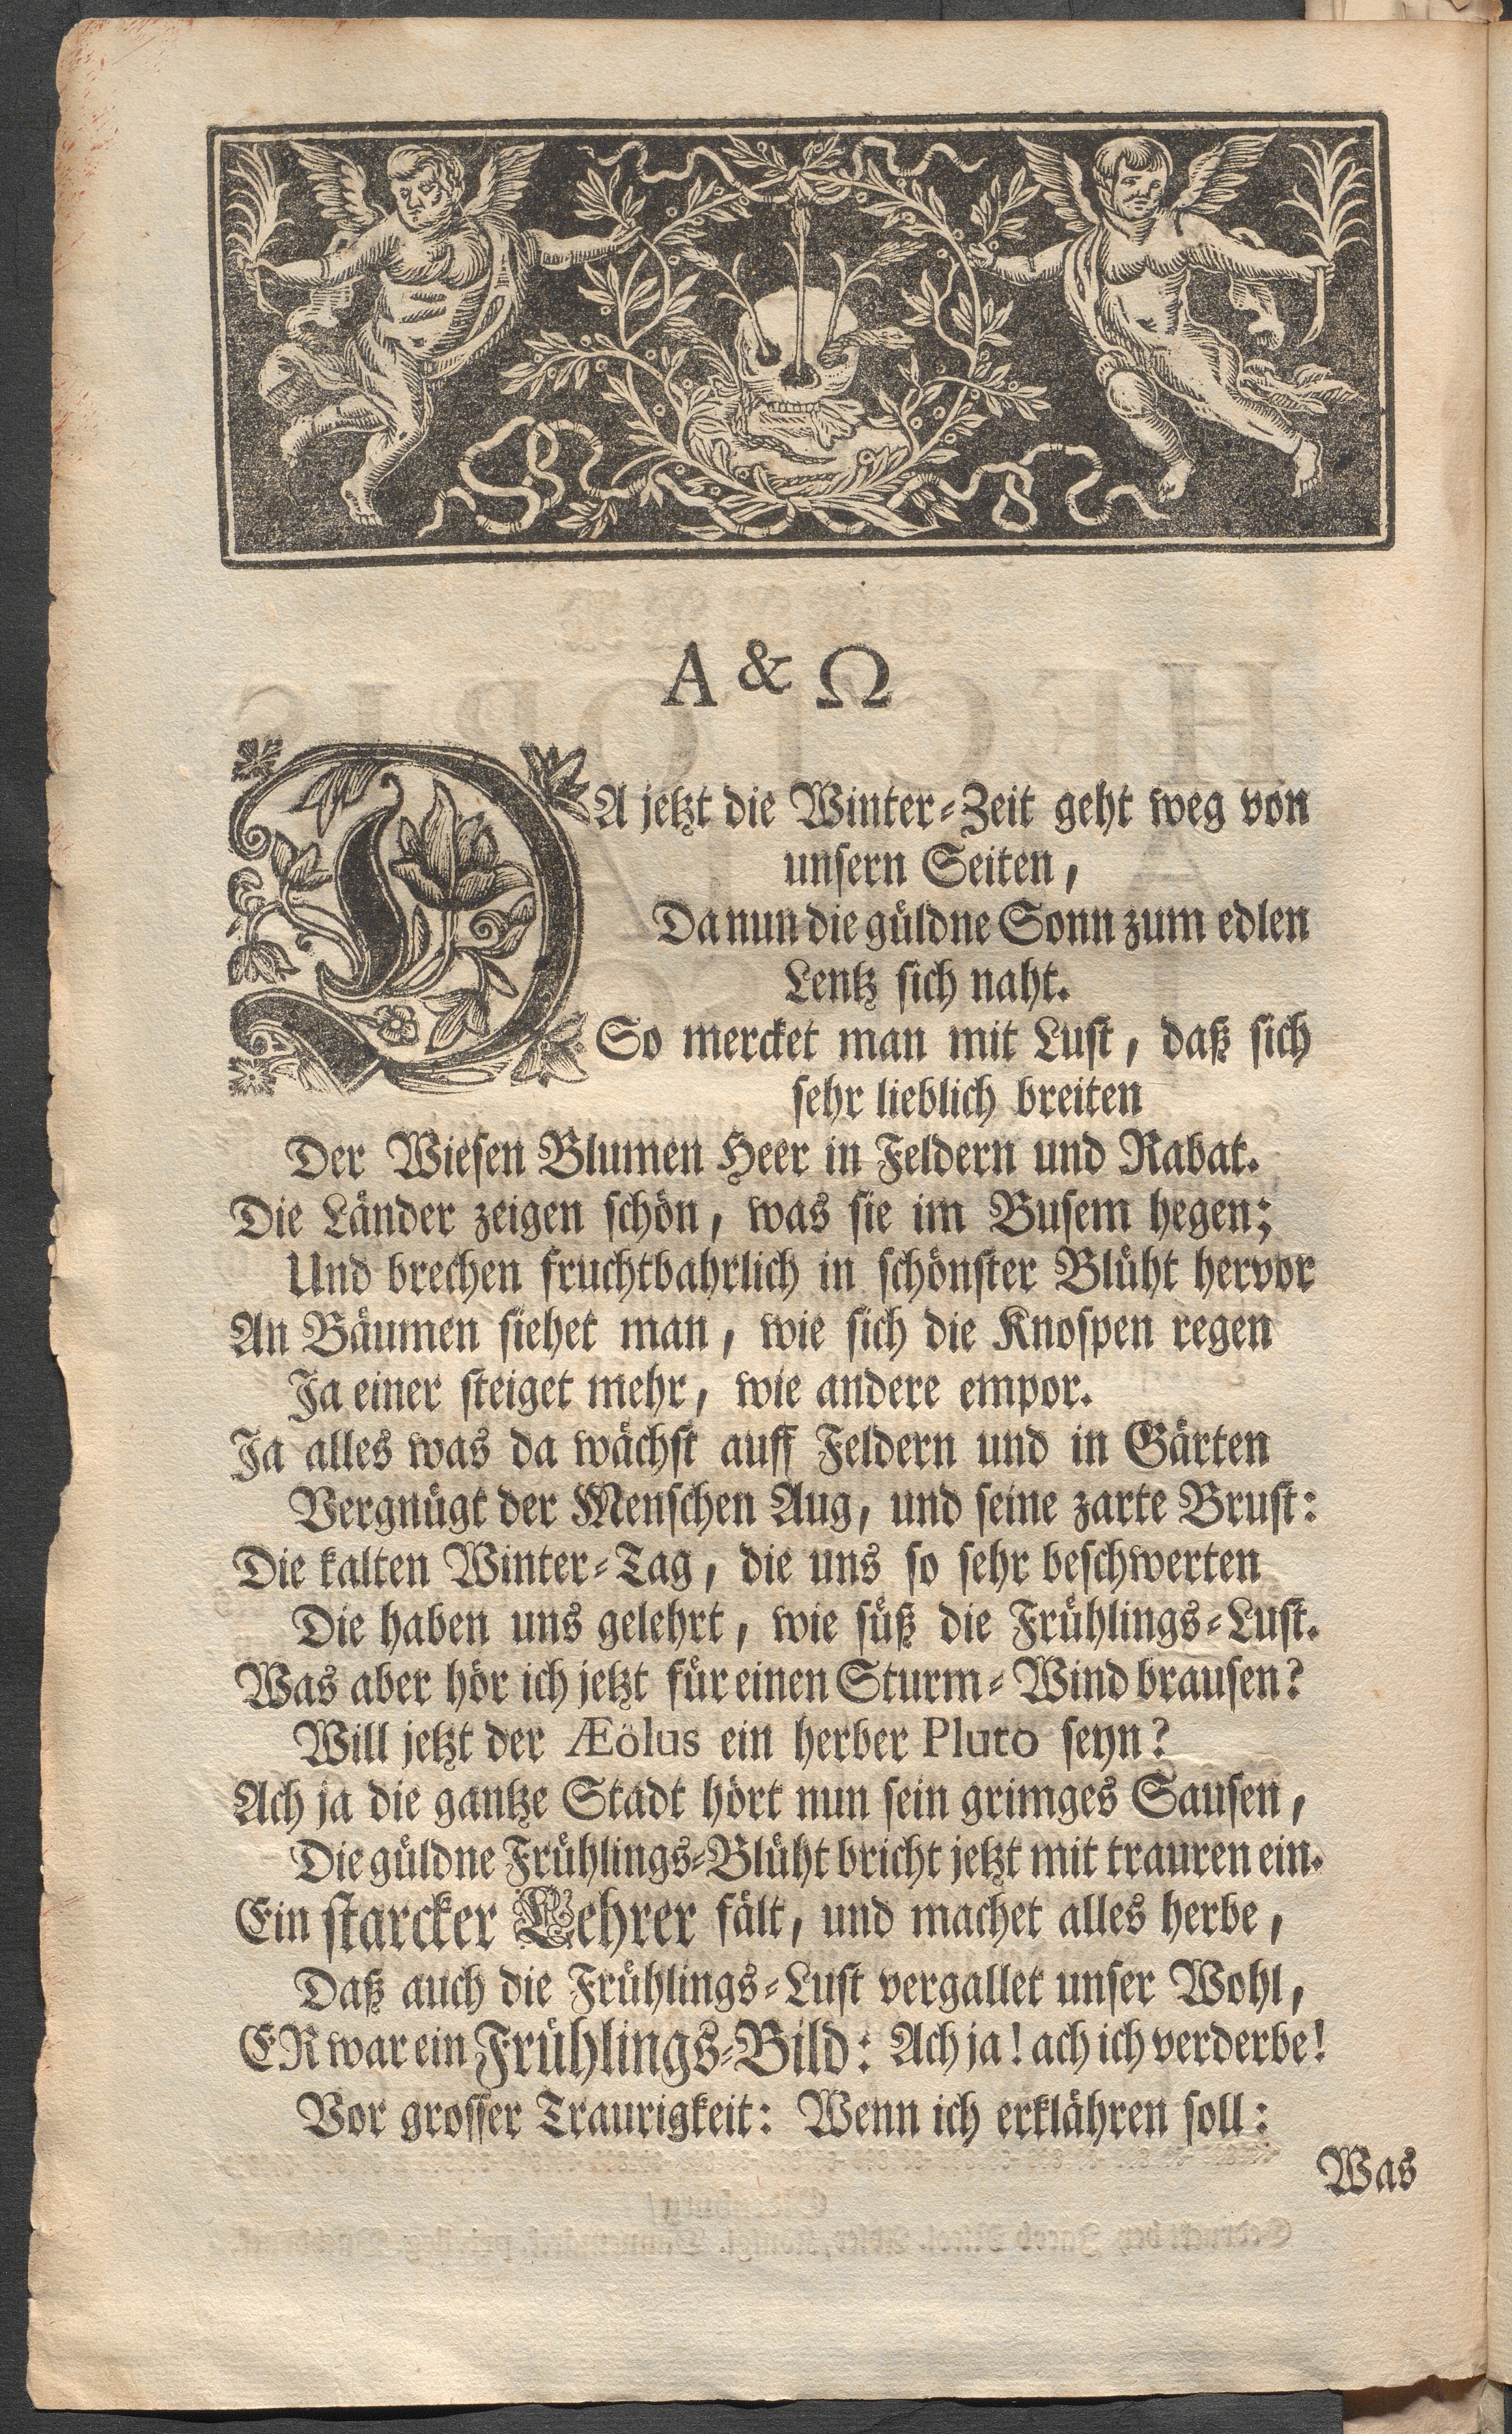 A & Ω
DA jetzt die Winter-Zeit geht weg von
unsern Seiten,
Da nun die güldne Sonn zum edlen
Lentz sich naht.
So mercket man mit Lust, daß sich
sehr lieblich breiten
Der Wiesen Blumen Heer in Feldern und Rabat.
Die Länder zeigen schön, was sie im Busem hegen;
Und brechen fruchtbahrlich in schönster Blüht hervor
An Bäumen siehet man, wie sich die Knospen regen
Ja einer steiget mehr, wie andere empor.
Ja alles was da wächst auff Feldern und in Gärten
Vergnügt der Menschen Aug, und seine zarte Brust:
Die kalten Winter-Tag, die uns so sehr beschwerten
Die haben uns gelehrt, wie süß die Frühlings-Lust.
Was aber hör ich jetzt für einen Sturm-Wind brausen?
Will jetzt der Æölus ein herber Pluto seyn?
Ach ja die gantze Stadt hört nun sein grimges Sausen,
Die güldne Frühlings-Blüht bricht jetzt mit trauren ein.
Ein starcker Lehrer fält, und machet alles herbe,
Daß auch die Frühlings-Lust vergallet unser Wohl,
ER war ein Frühlings-Bild: Ach ja! ach ich verderbe!
Vor grosser Traurigkeit: Wenn ich erklähren soll:
Was